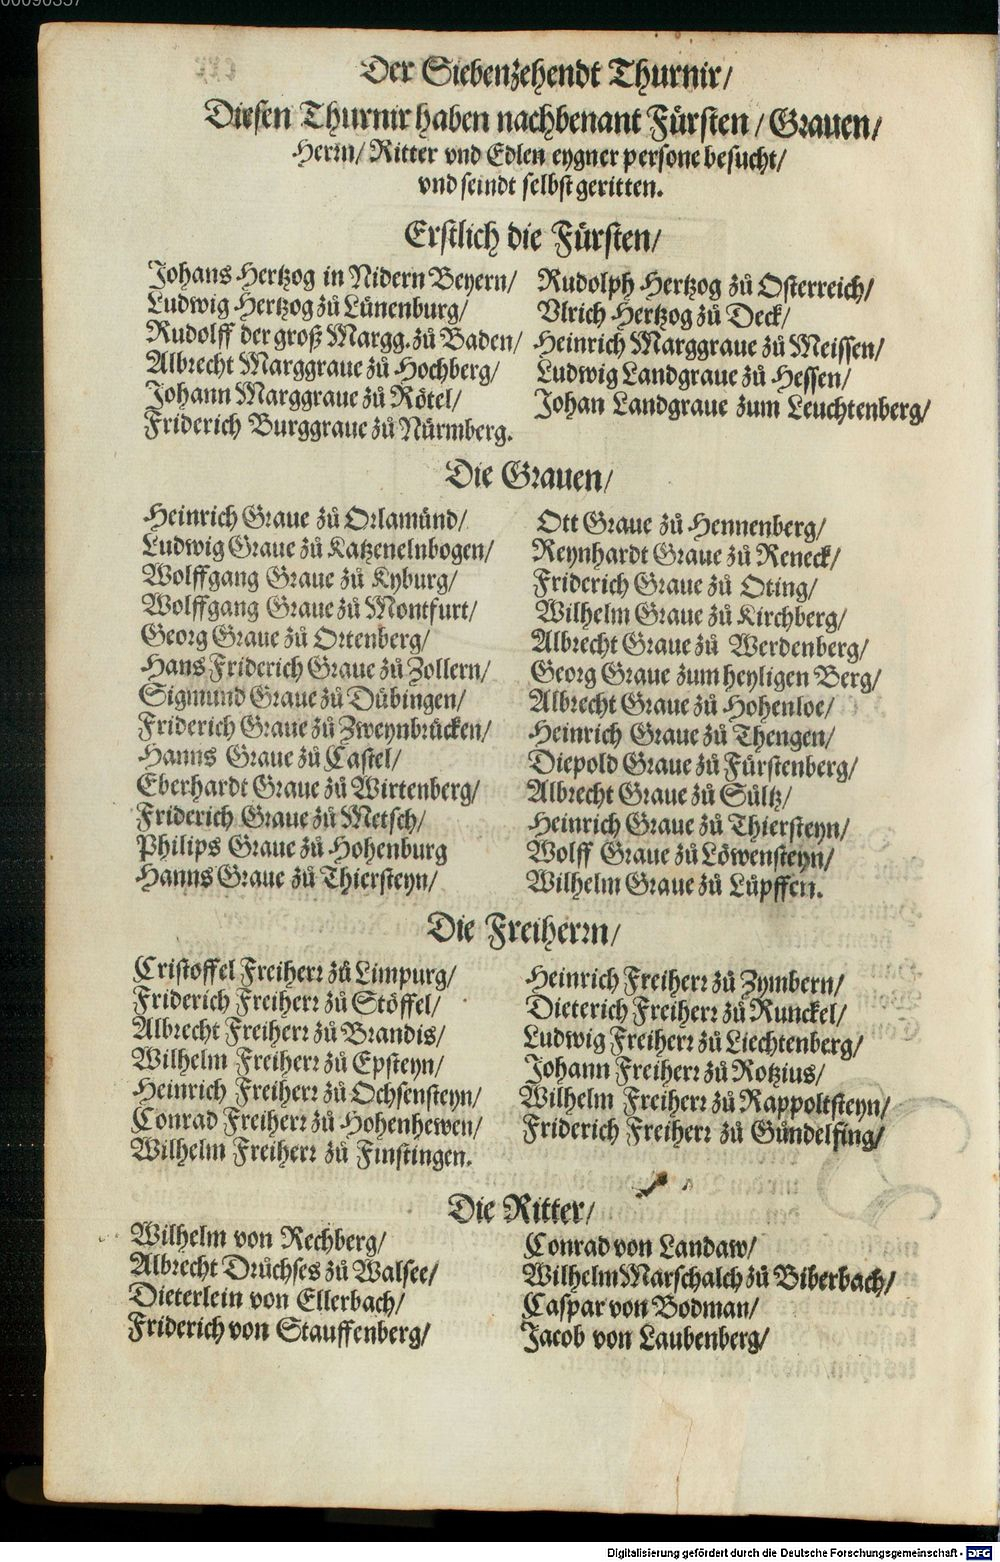 00090357
Der Siebenzehendt Thurnir/
Diesen Thurnir haben nachbenant Fürsten / Grauen/
Herrn/ Ritter vnd Edlen eygner persone besucht/
vnd seindt selbst geritten.
Erstlich die Fürsten/
Johans Hertzog in Nidern Beyern/
Ludwig Hertzog zů Lünenburg/
Rudolff der groß Margg. zů Baden/
Albrecht Marggraue zů Hochberg/
Johann Marggraue zů Rötel/
Friderich Burggraue zů Nürmberg.
Rudolph Hertzog zů Osterreich/
Vlrich Hertzog zů Deck/
Heinrich Marggraue zů Meissen/
Ludwig Landgraue zů Hessen/
Johan Landgraue zum Leuchtenberg/
Die Grauen/
Heinrich Graue zů Orlamünd/
Ludwig Graue zů Katzenelnbogen/
Wolffgang Graue zů Kyburg/
Wolffgang Graue zů Montfurt/
Georg Graue zů Ortenberg/
Hans Friderich Graue zů Zollern/
Sigmund Graue zů Dübingen/
Friderich Graue zů Zweynbrücken/
Hanns Graue zů Castel/
Eberhardt Graue zů Wirtenberg/
Friderich Graue zů Metsch/
Philips Graue zů Hohenburg
Hanns Graue zů Thiersteyn/
Ott Graue zů Hennenberg/
Reynhardt Graue zů Reneck/
Friderich Graue zů Oting/
Wilhelm Graue zů Kirchberg/
Albrecht Graue zů Werdenberg/
Georg Graue zum heyligen Berg/
Albrecht Graue zů Hohenloe/
Heinrich Graue zů Thengen/
Diepold Graue zů Fürstenberg/
Albrecht Graue zů Sültz/
Heinrich Graue zů Thiersteyn/
Wolff Graue zů Löwensteyn/
Wilhelm Graue zů Lüpffen.
Die Freiherrn/
Cristoffel Freiherr zů Limpurg/
Friderich Freiherr zů Stöffel/
Albrecht Freiherr zů Brandis/
Wilhelm Freiherr zů Epsteyn/
Heinrich Freiherr zů Ochsensteyn/
Conrad Freiherr zů Hohenhewen/
Wilhelm Freiherr zů Finstingen.
Heinrich Freiherr zů Zymbern/
Dieterich Freiherr zů Runckel/
Ludwig Freiherr zů Liechtenberg/
Johann Freiherr zů Rotzius/
Wilhelm Freiherr zů Rappoltsteyn/
Friderich Freiherr zů Gündelfing/
Die Ritter/
Wilhelm von Rechberg/
Albrecht Drüchses zů Walsee/
Dieterlein von Ellerbach/
Friderich von Stauffenberg/
Conrad von Landaw/
Wilhelm Marschalch zů Biberbach/
Caspar von Bodman/
Jacob von Laubenberg/
Digitalisierung gefördert durch die Deutsche Forschungsgemeinschaft - DFG